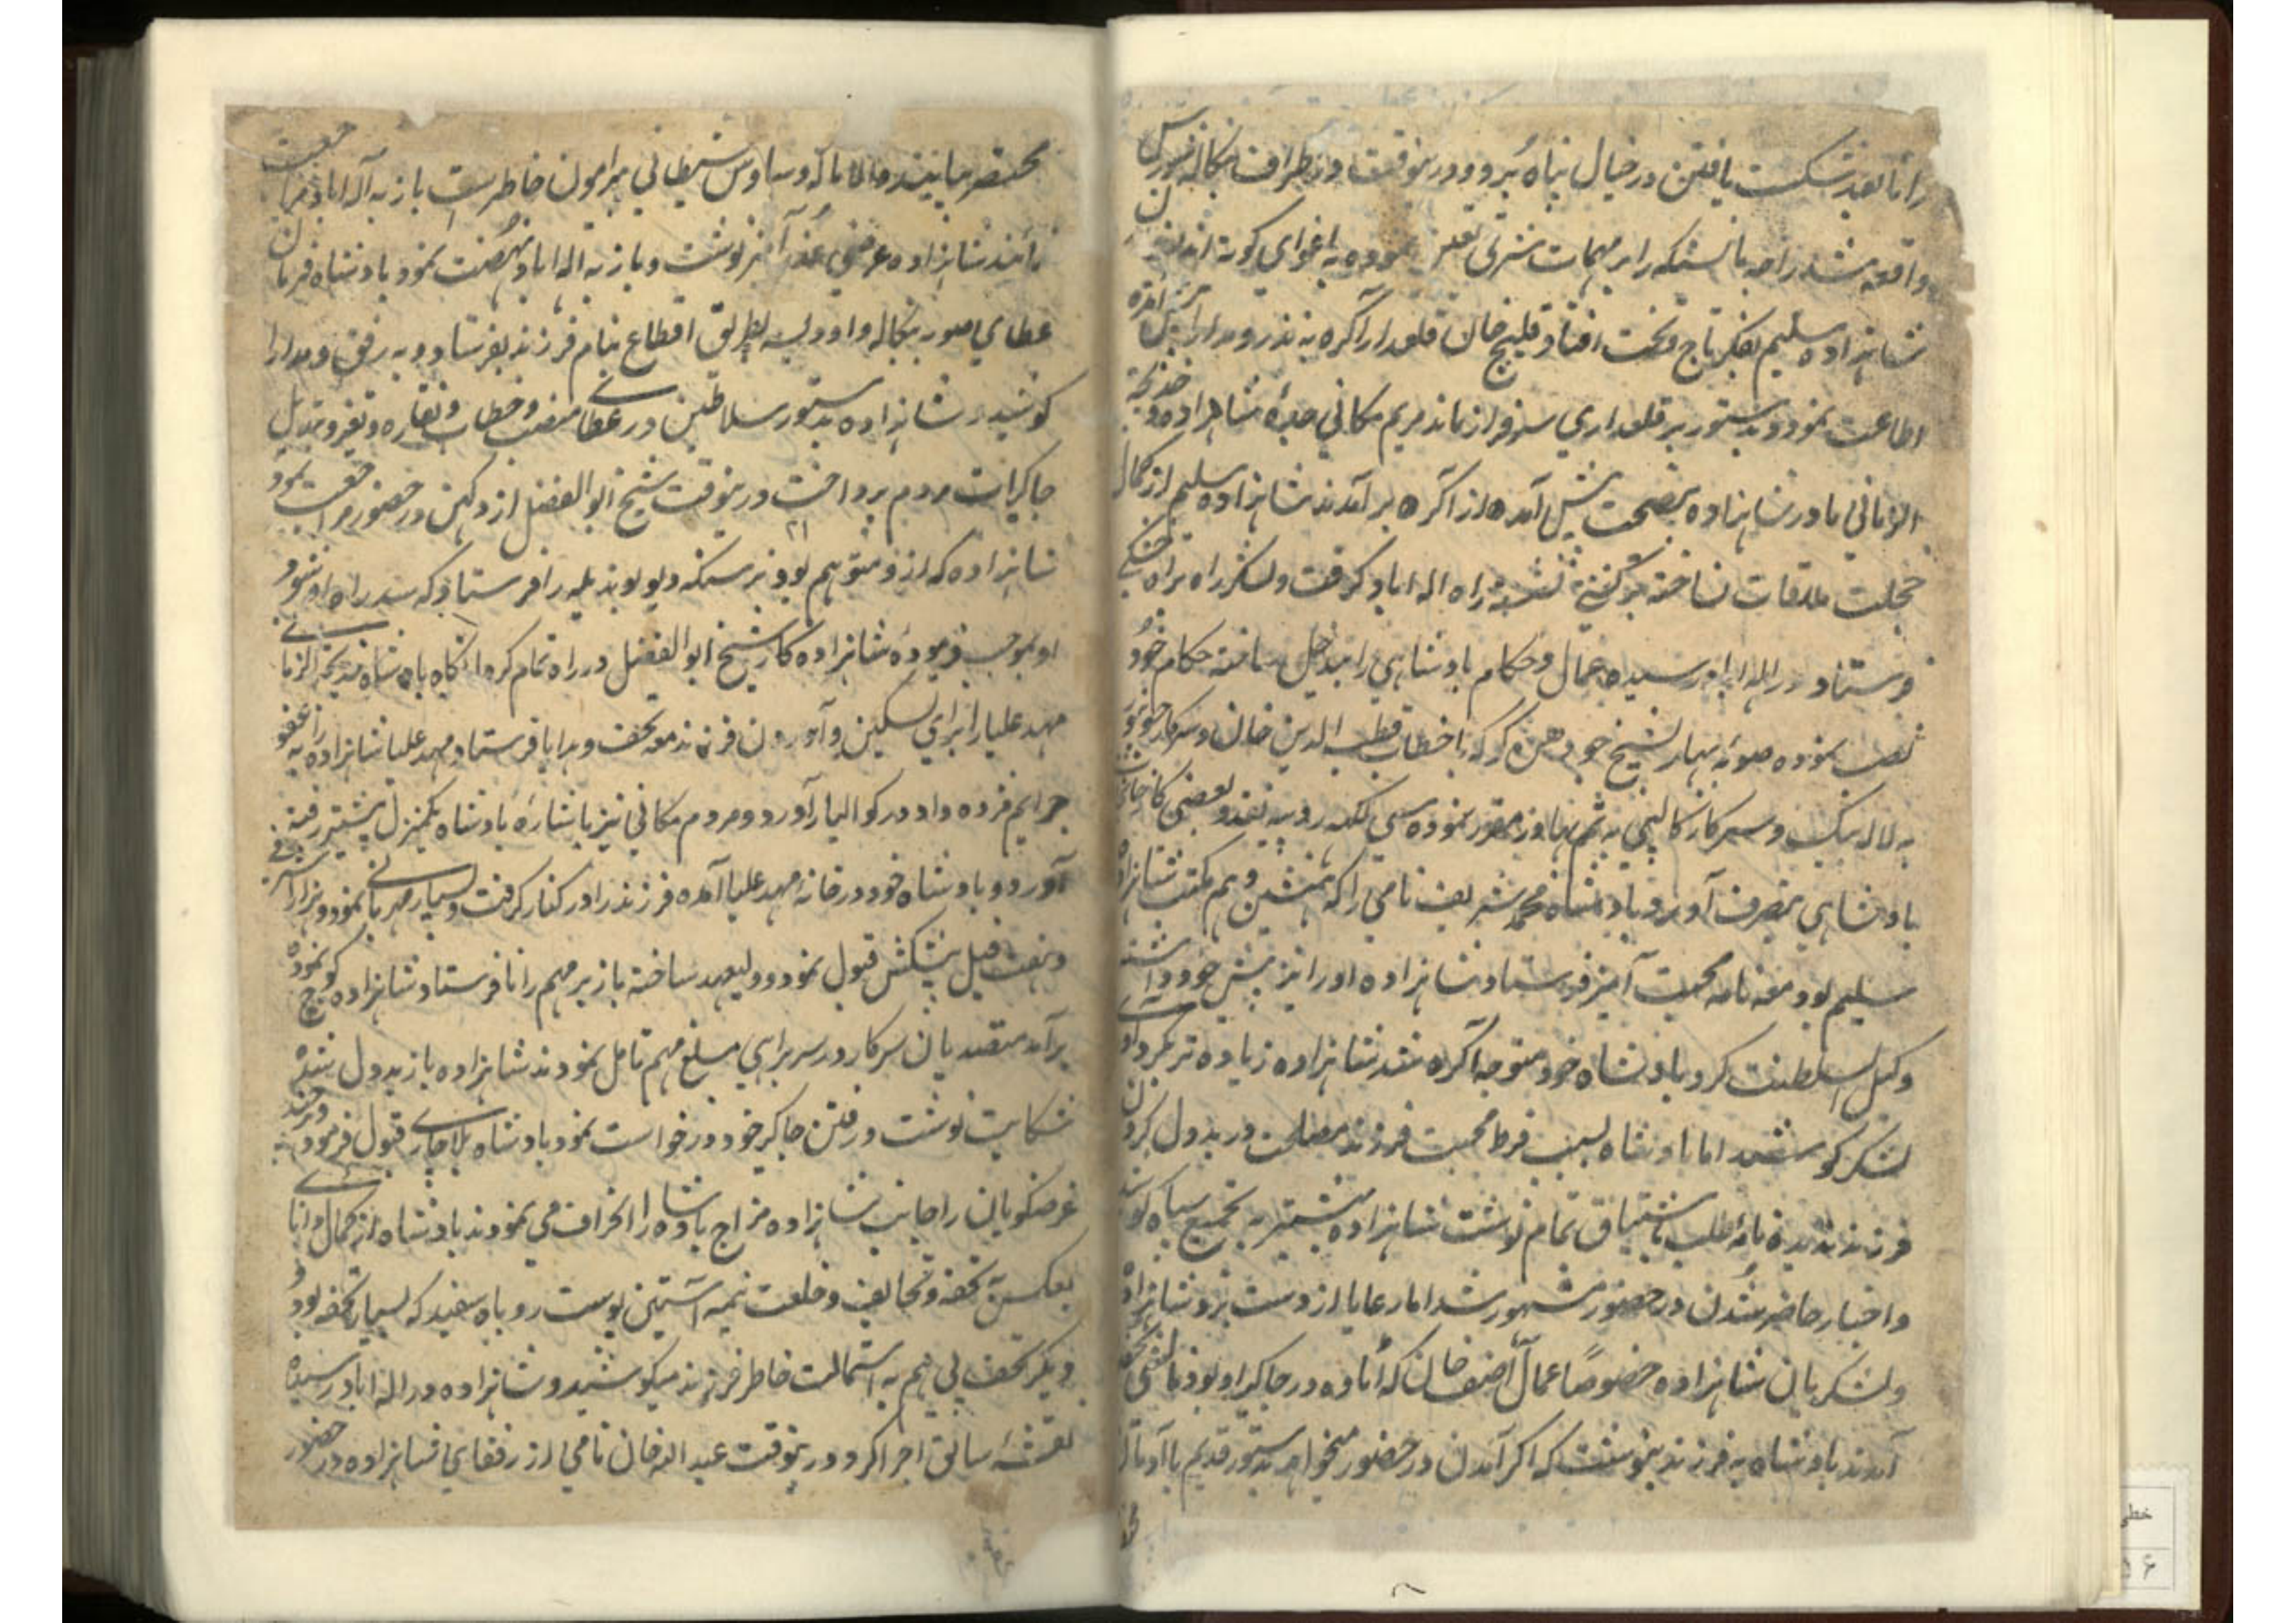 رانا بعد شکست یافتن در جبال پناه برد و درینوقت در اطراف بنکاله شورش
واقعه شد راجه مانسنکه را بر مهمات شرقی تعین نموده به اغوای کوته اندیشان
شاهزاده سلیم بفکر تاج و تخت افتاد قلیچ خان قلعدار آکره به نذر و مدارا پیش آمده
اطاعت نمود و بدستور بر قلعداری سرفراز ماند مریم مکانی جدهٔ شاهزاده و خدیجة
الزمانی مادر شاهزاده بنصیحت پیش آمده از آکره برآمدند شاهزاده سلیم از کمال
خجلت ملاقات نساخته بر کشتی نشسته راه اله اباد کرفت و لشکر راه براه خشکی
فرستاد در اله اباد رسیده عمال و حکام بادشاهی را بیدخل ساخته حکام خود
نصب نموده صوبه بهار بشیخ جو را بخطاب قطب الدین خان و سرکار جونپور
به لاله بیک و سرکار کالپی به مقرر نموده سی لکهه روپیه نقد و بعضی کارخانجات
بادشاهی بتصرف آورد و بادشاه محمد شریف نامی را که همنشین و هم مکتب شاهزاده
سلیم بود معه نامه محبت آمیز فرستاد شاهزاده او را نیز پیش خود داشته
وکیل السلطنت کرد بادشاه خود متوجه آکره شد شاهزاده زیاده تر بکردآوری
لشکر کوشید اما بادشاه بسبب فرط محبت فرزند مصلحت در بدول کردن
فرزند ندیده نامه طلب باشتیاق تمام نوشت شاهزاده بیشتر به تجمیع سپاه کوشید
و اخبار حاضر شدن در حضور مشهور شد اما رعایا از دست برد شاهزاده
و لشکریان شاهزاده خصوصا عمال آصف خان که اتاوه در جاکیر او بود
آمدند بادشاه به فرزند بنوشت که اکر آمدن در حضور میخواهد بدستور قدیم با آدمان
مختصر بیایند والا تا که وساوس شیطانی پیرامون خاطر ست باز به اله اباد مراجعت
نمایند شاهزاده عرضی عذر آمیز نوشت و باز به اله اباد نهضت نمود بادشاه فرمان
عطای صوبه بنکاله و اودیسه بطریق اقطاع بنام فرزند بفرستاد و به رفق و مدارا
کوشید شاهزاده بدستور سلاطین در عطای منصب و خطاب و نقاره و تغیر و تبدیل
جاکیرات مردم پرداخت درینوقت شیخ ابوالفضل از دکهن در حضور مراجعت نمود
شاهزاده که از و متوهم بود نرسنکه دیو بوندیله را فرستاد که سد راه او شود
او بموجب فرموده شاهزاده کار شیخ ابوالفضل در راه تمام کرد انکاه بادشاه خدیجة الزمانی
مهد علیا را برای تسکین و آوردن فرزند معه تحف و هدایا فرستاد مهد علیا شاهزاده را به عفو
جرایم مژده داد در کوالیار آورد و مریم مکانی نیز باشارهٔ بادشاه یکمنزل پیشتر رفته
آورد و بادشاه خود در خانه مهد علیا آمده فرزند را در کنار کرفت و بسیار مهربانی نمود و هزار اشرفی
و نهصد فیل پیشکش قبول نمود و ولیعهد ساخته باز بر مهم رانا فرستاد شاهزاده کوچ نموده
برآمد متصدیان سرکار در سربراهی مبلغ مهم تامل نمودند شاهزاده باز بدول شده
شکایت نوشت و رفتن جاکیر خود درخواست نمود بادشاه بلاچاری قبول فرمود و هرچند
غرضکویان را جانب شاهزاده مزاج بادشاه را انحراف می نمودند بادشاه از کمال دانائی
بعکس آن تحفه و تحایف و خلعت نیمه آستین پوست روباه سفید که بسیار تحفه بود
و دیکر تحف بی هم به استمالت خاطر فرزند میکوشید و شاهزاده در اله اباد رسیده
نقشهٔ سابق اجرا کرد درینوقت عبد الله خان نامی از رفقای شاهزاده در حضور